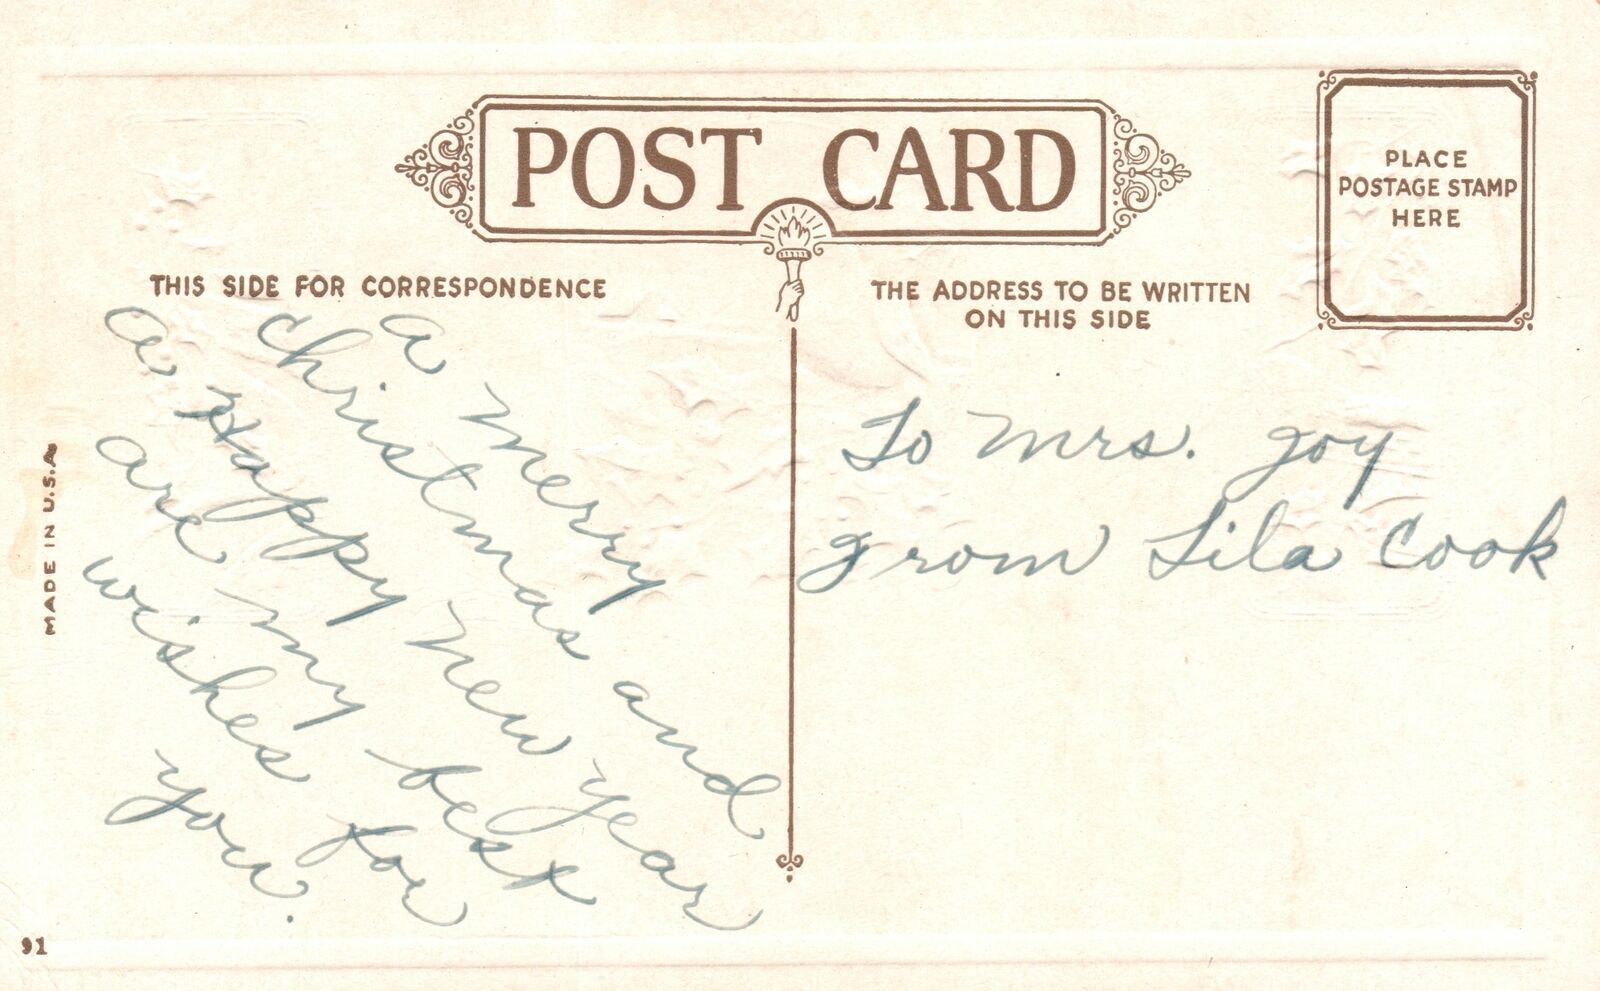 POST CARD
PLACE
POSTAGE STAMP
HERE
THIS SIDE FOR CORRESPONDENCE
THE ADDRESS TO BE WRITTEN
ON THIS SIDE
a merry
christmas and
a Happy New year
are my best
wishes for
you.
To Mrs. Joy
from Lila Cook
MADE IN U.S.A
91